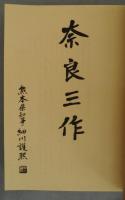 奈良三作
熊本県知事 細川護熙